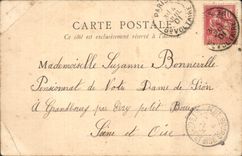 CARTE POSTALE
Ce côté est exclusivement réservé à l'adresse
Mademoiselle Suzanne Bonneville
Pensionnat de Notre Dame de Sion
à Grandbourg par Evry petit Bourg
Seine et Oise